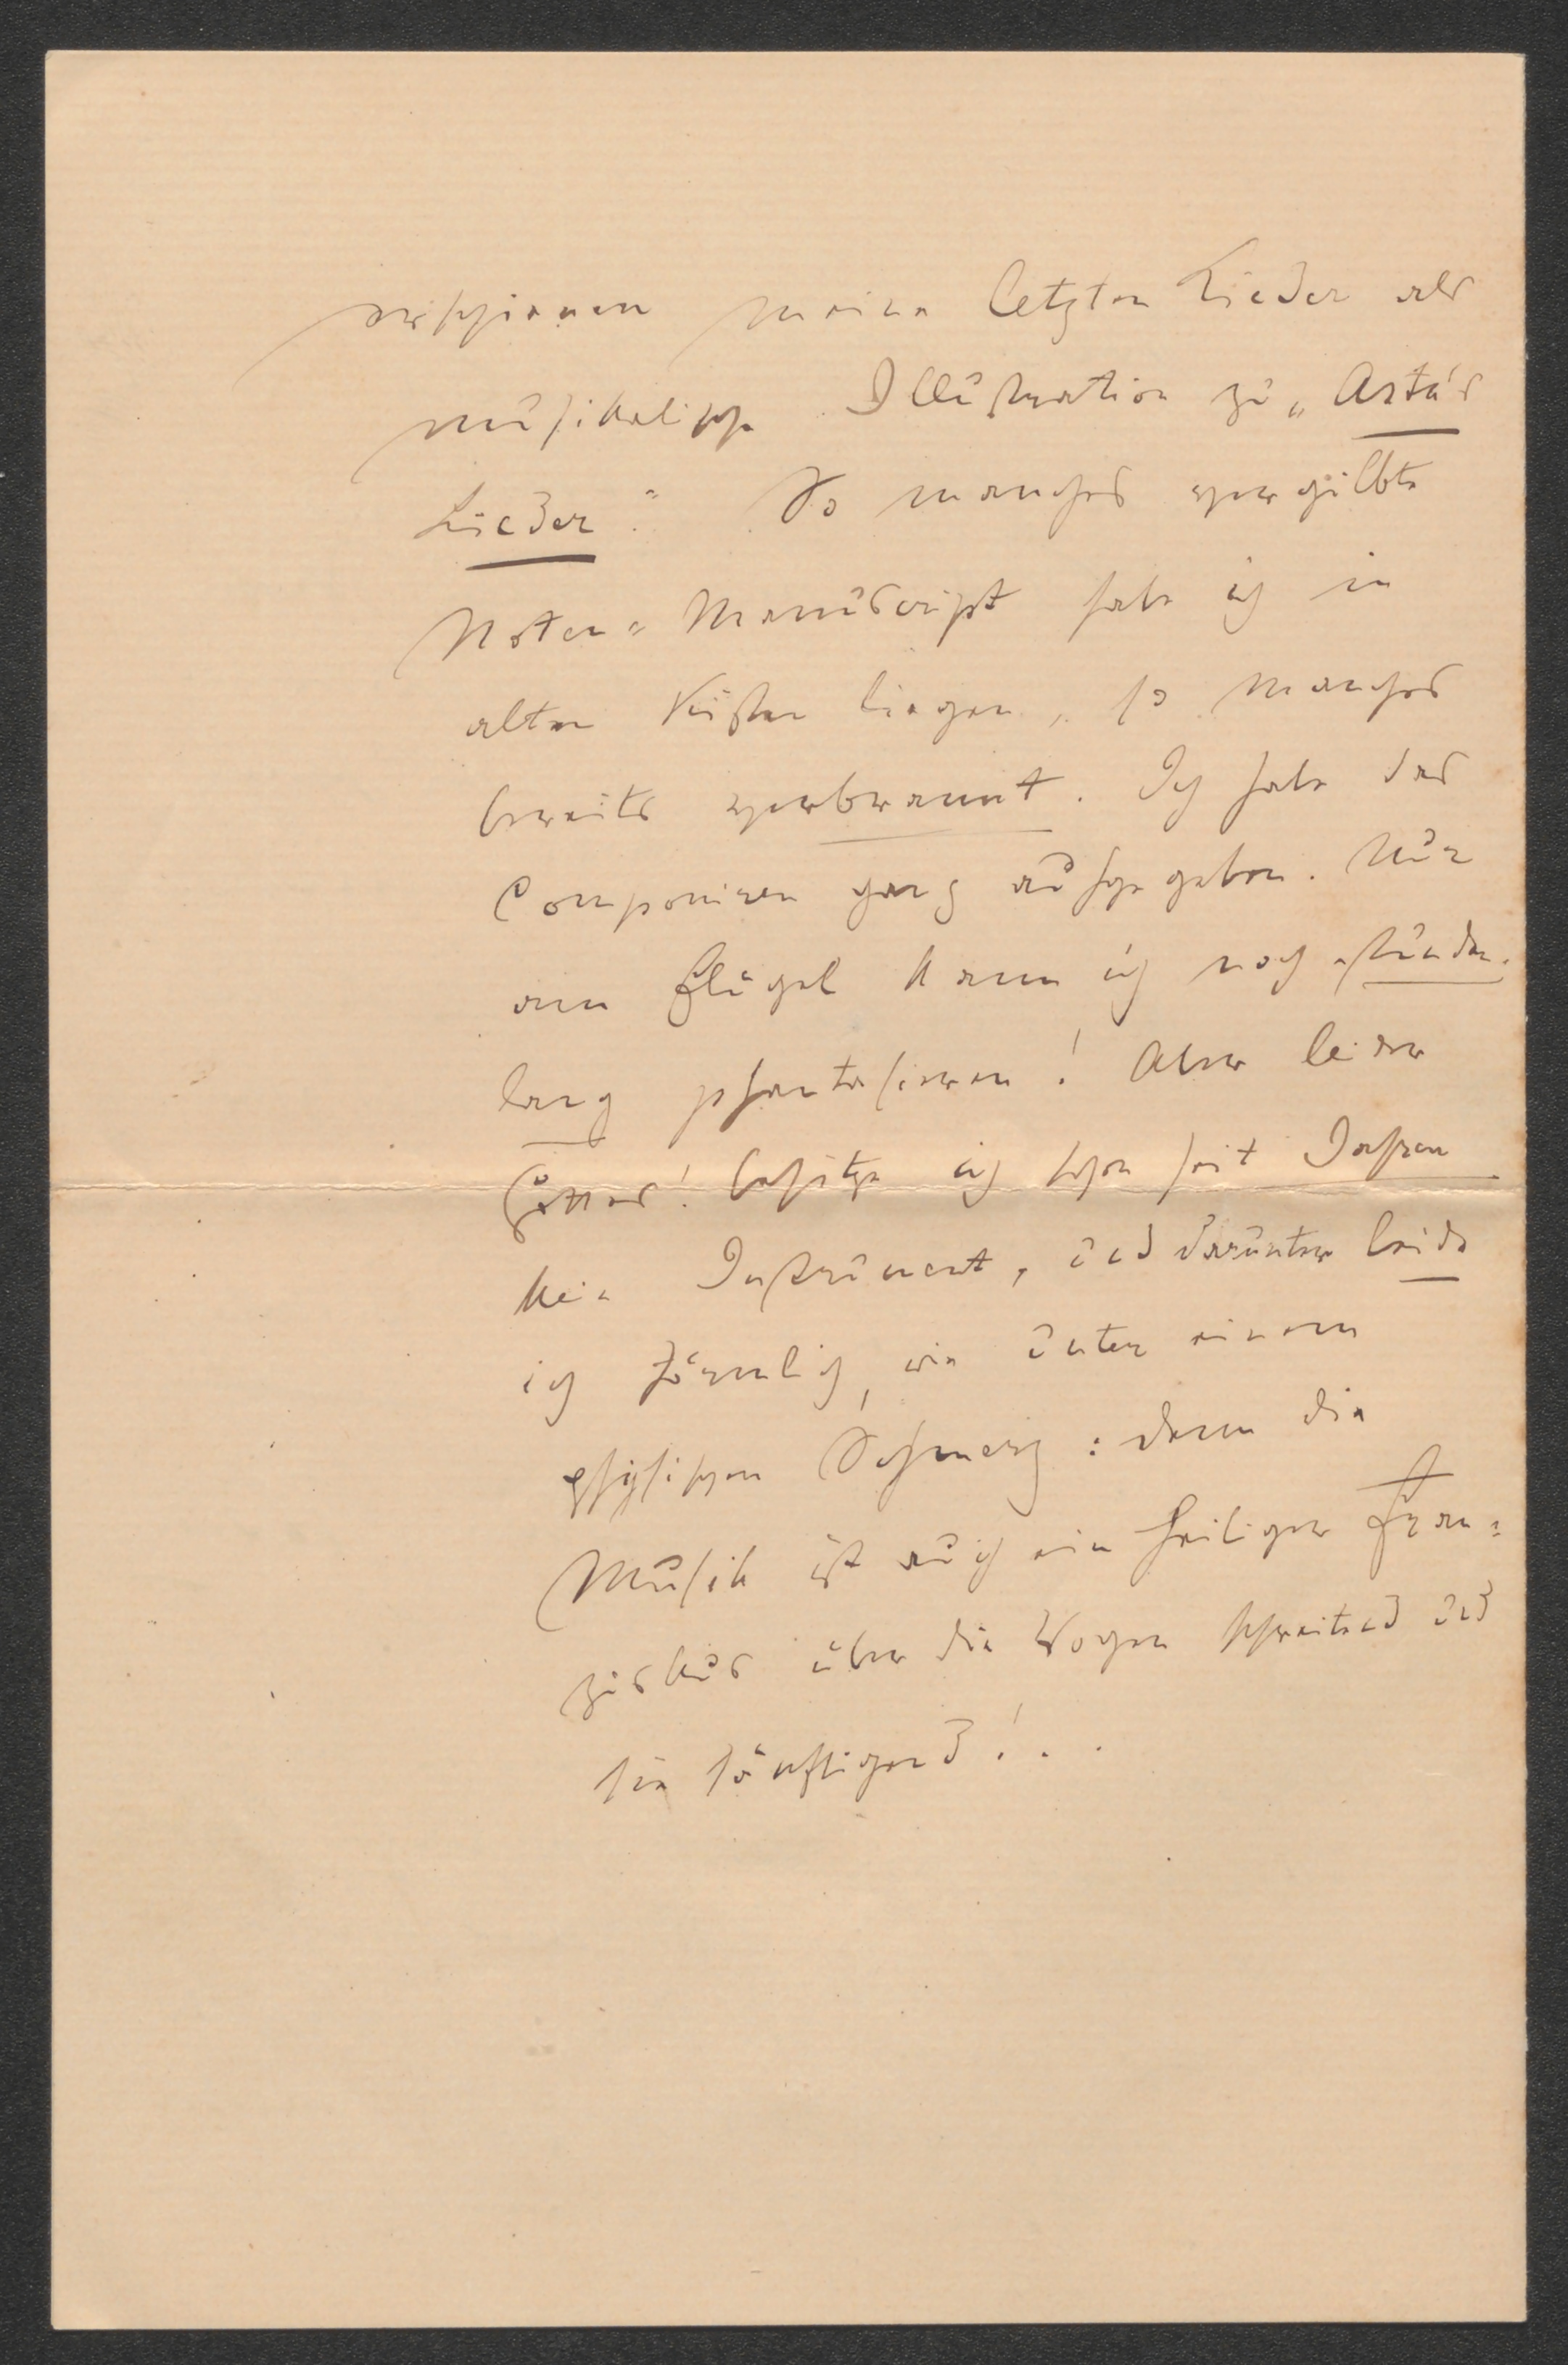 erschienen meine letzten Lieder als
musikalische Illustration zu „Asta's
Lieder". So manches vergilbte
Noten=Manuscript habe ich in
alten Kisten liegen, so manches
bereits verbrannt. Ich habe das
Componiren ganz aufgegeben. Nur
am Flügel kann ich noch stunden=
lang phantasieren! Aber leider
Gottes! besitze ich schon seit Jahren
kein Instrument, und darunter leide
ich förmlich, wie unter einem
physischen Schmerz: denn die
Musik ist auch ein heiliger Fran=
ziskus über die Wogen schreitend und
sie sänftigend! . .